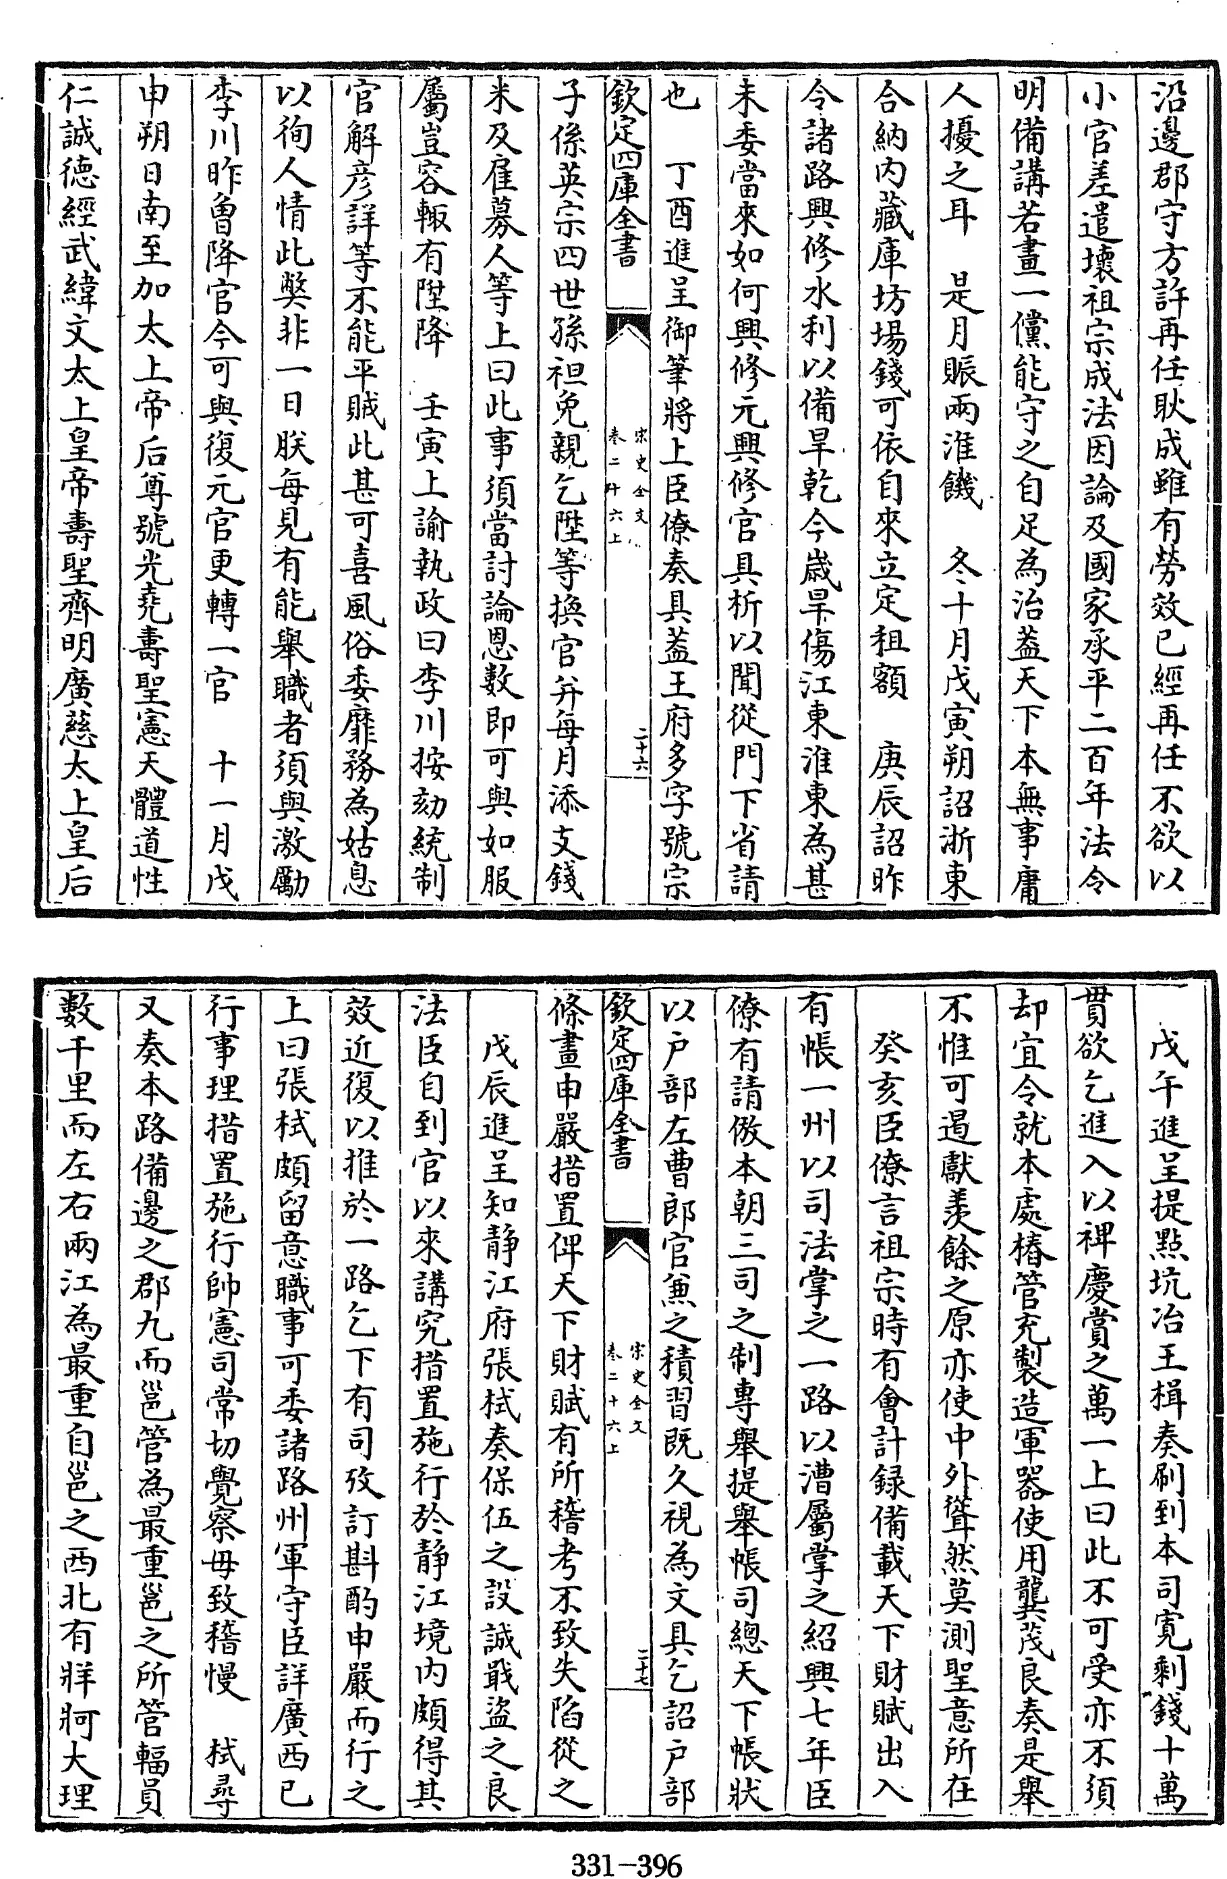 沿邊郡守方許再任耿成雖有勞效已經再任不欲以
小官差遣壞祖宗成法因論及國家承平二百年法令
明備講若畫一儻能守之自足為治蓋天下本無事庸
人擾之耳　是月賑兩淮饑　冬十月戊寅朔詔浙東
合納內藏庫坊場錢可依自來立定租額　庚辰詔昨
令諸路興修水利以備旱乾今歲旱傷江東淮東為甚
未委當來如何興修元興修官具析以聞從門下省請
也　丁酉進呈御筆將上臣僚奏具蓋王府多字號宗
欽定四庫全書
宋史全文
卷二十六上
二十六
子係英宗四世孫袒免親乞陞等換官幷每月添支錢
米及雇募人等上曰此事須當討論恩數即可與如服
屬豈容輙有陞降　壬寅上諭執政曰李川按劾統制
官解彥詳等不能平賊此甚可喜風俗委靡務為姑息
以徇人情此獘非一日朕每見有能舉職者須與激勵
李川昨曾降官今可與復元官更轉一官　十一月戊
申朔日南至加太上帝后尊號光堯壽聖憲天體道性
仁誠德經武緯文太上皇帝壽聖齊明廣慈太上皇后
戊午進呈提點坑冶王楫奏刷到本司寛剩錢十萬
貫欲乞進入以裨慶賞之萬一上曰此不可受亦不須
却宜令就本處樁管充製造軍器使用龔茂良奏是舉
不惟可遏獻羨餘之原亦使中外聳然莫測聖意所在
癸亥臣僚言祖宗時有會計録備載天下財賦出入
有帳一州以司法掌之一路以漕屬掌之紹興七年臣
僚有請倣本朝三司之制專舉提舉帳司總天下帳狀
以户部左曹郎官兼之積習既久視為文具乞詔户部
欽定四庫全書
宋史全文
卷二十六上
二十七
條畫申嚴措置俾天下財賦有所稽考不致失陷從之
戊辰進呈知靜江府張栻奏保伍之設誠戢盜之良
法臣自到官以來講究措置施行於靜江境內頗得其
效近復以推於一路乞下有司攷訂斟酌申嚴而行之
上曰張栻頗留意職事可委諸路州軍守臣詳廣西已
行事理措置施行帥憲司常切覺察毋致稽慢　栻尋
又奏本路備邊之郡九而邕管為最重邕之所管輻員
數千里而左右兩江為最重自邕之西北有牂牁大理
331-396